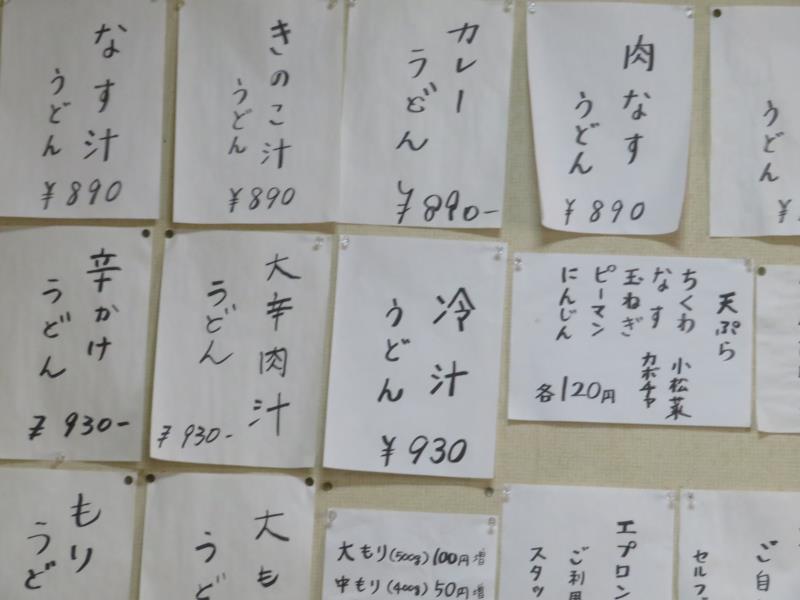 なす汁
うどん
¥890
きのこ汁
うどん
¥890
カレー
うどん
¥890-
肉なす
うどん
¥890
うどん
¥
辛かけ
うどん
¥930-
大辛肉汁
うどん
¥930-
冷汁
うどん
¥930
天ぷら
ちくわ 小松菜
なす カボチャ
玉ねぎ
ピーマン
にんじん
各120円
もり
うど
大も
うど
大もり(500g)100円増
中もり(400g)50円増
エプロン
ご利用
スタッ
ご自
セルフ